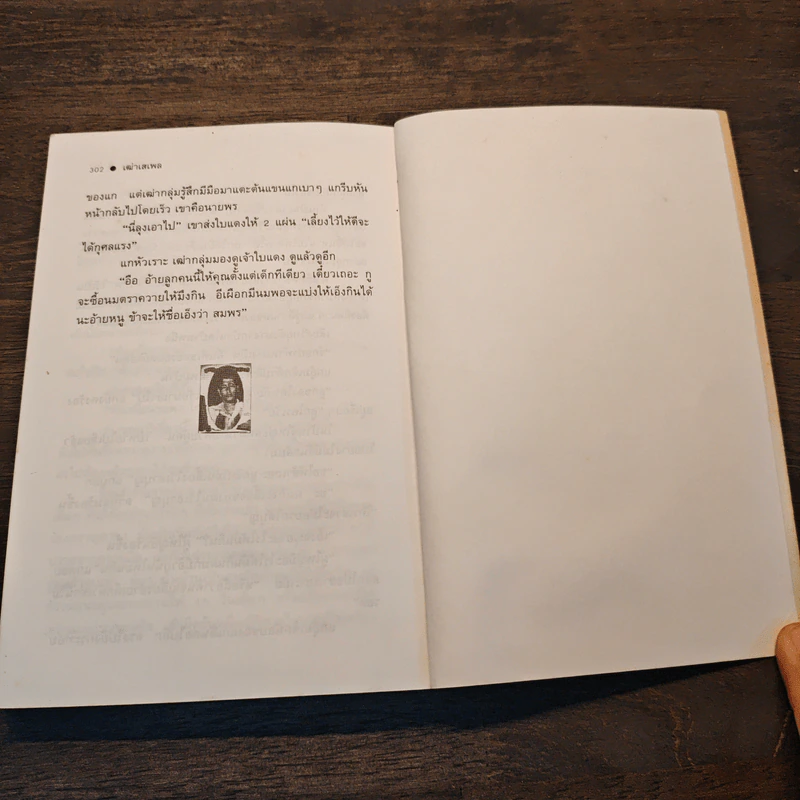 302 ● เฒ่าเสเพล
ของแก แต่เฒ่ากลุ่มรู้สึกมีมือมาแตะต้นแขนแกเบาๆ แกรีบหัน
หน้ากลับไปโดยเร็ว เขาคือนายพร
"นี่ลุงเอาไป" เขาส่งใบแดงให้ 2 แผ่น "เลี้ยงไว้ให้ดีจะ
ได้กุศลแรง"
แกหัวเราะ เฒ่ากลุ่มมองดูเจ้าใบแดง ดูแล้วดูอีก
"อือ อ้ายลูกคนนี้ให้คุณตั้งแต่เด็กทีเดียว เดี๋ยวเถอะ กู
จะซื้อนมตราควายให้มึงกิน อีเผือกมีนมพอจะแบ่งให้เอ็งกินได้
นะอ้ายหนู ข้าจะให้ชื่อเอ็งว่า สมพร"